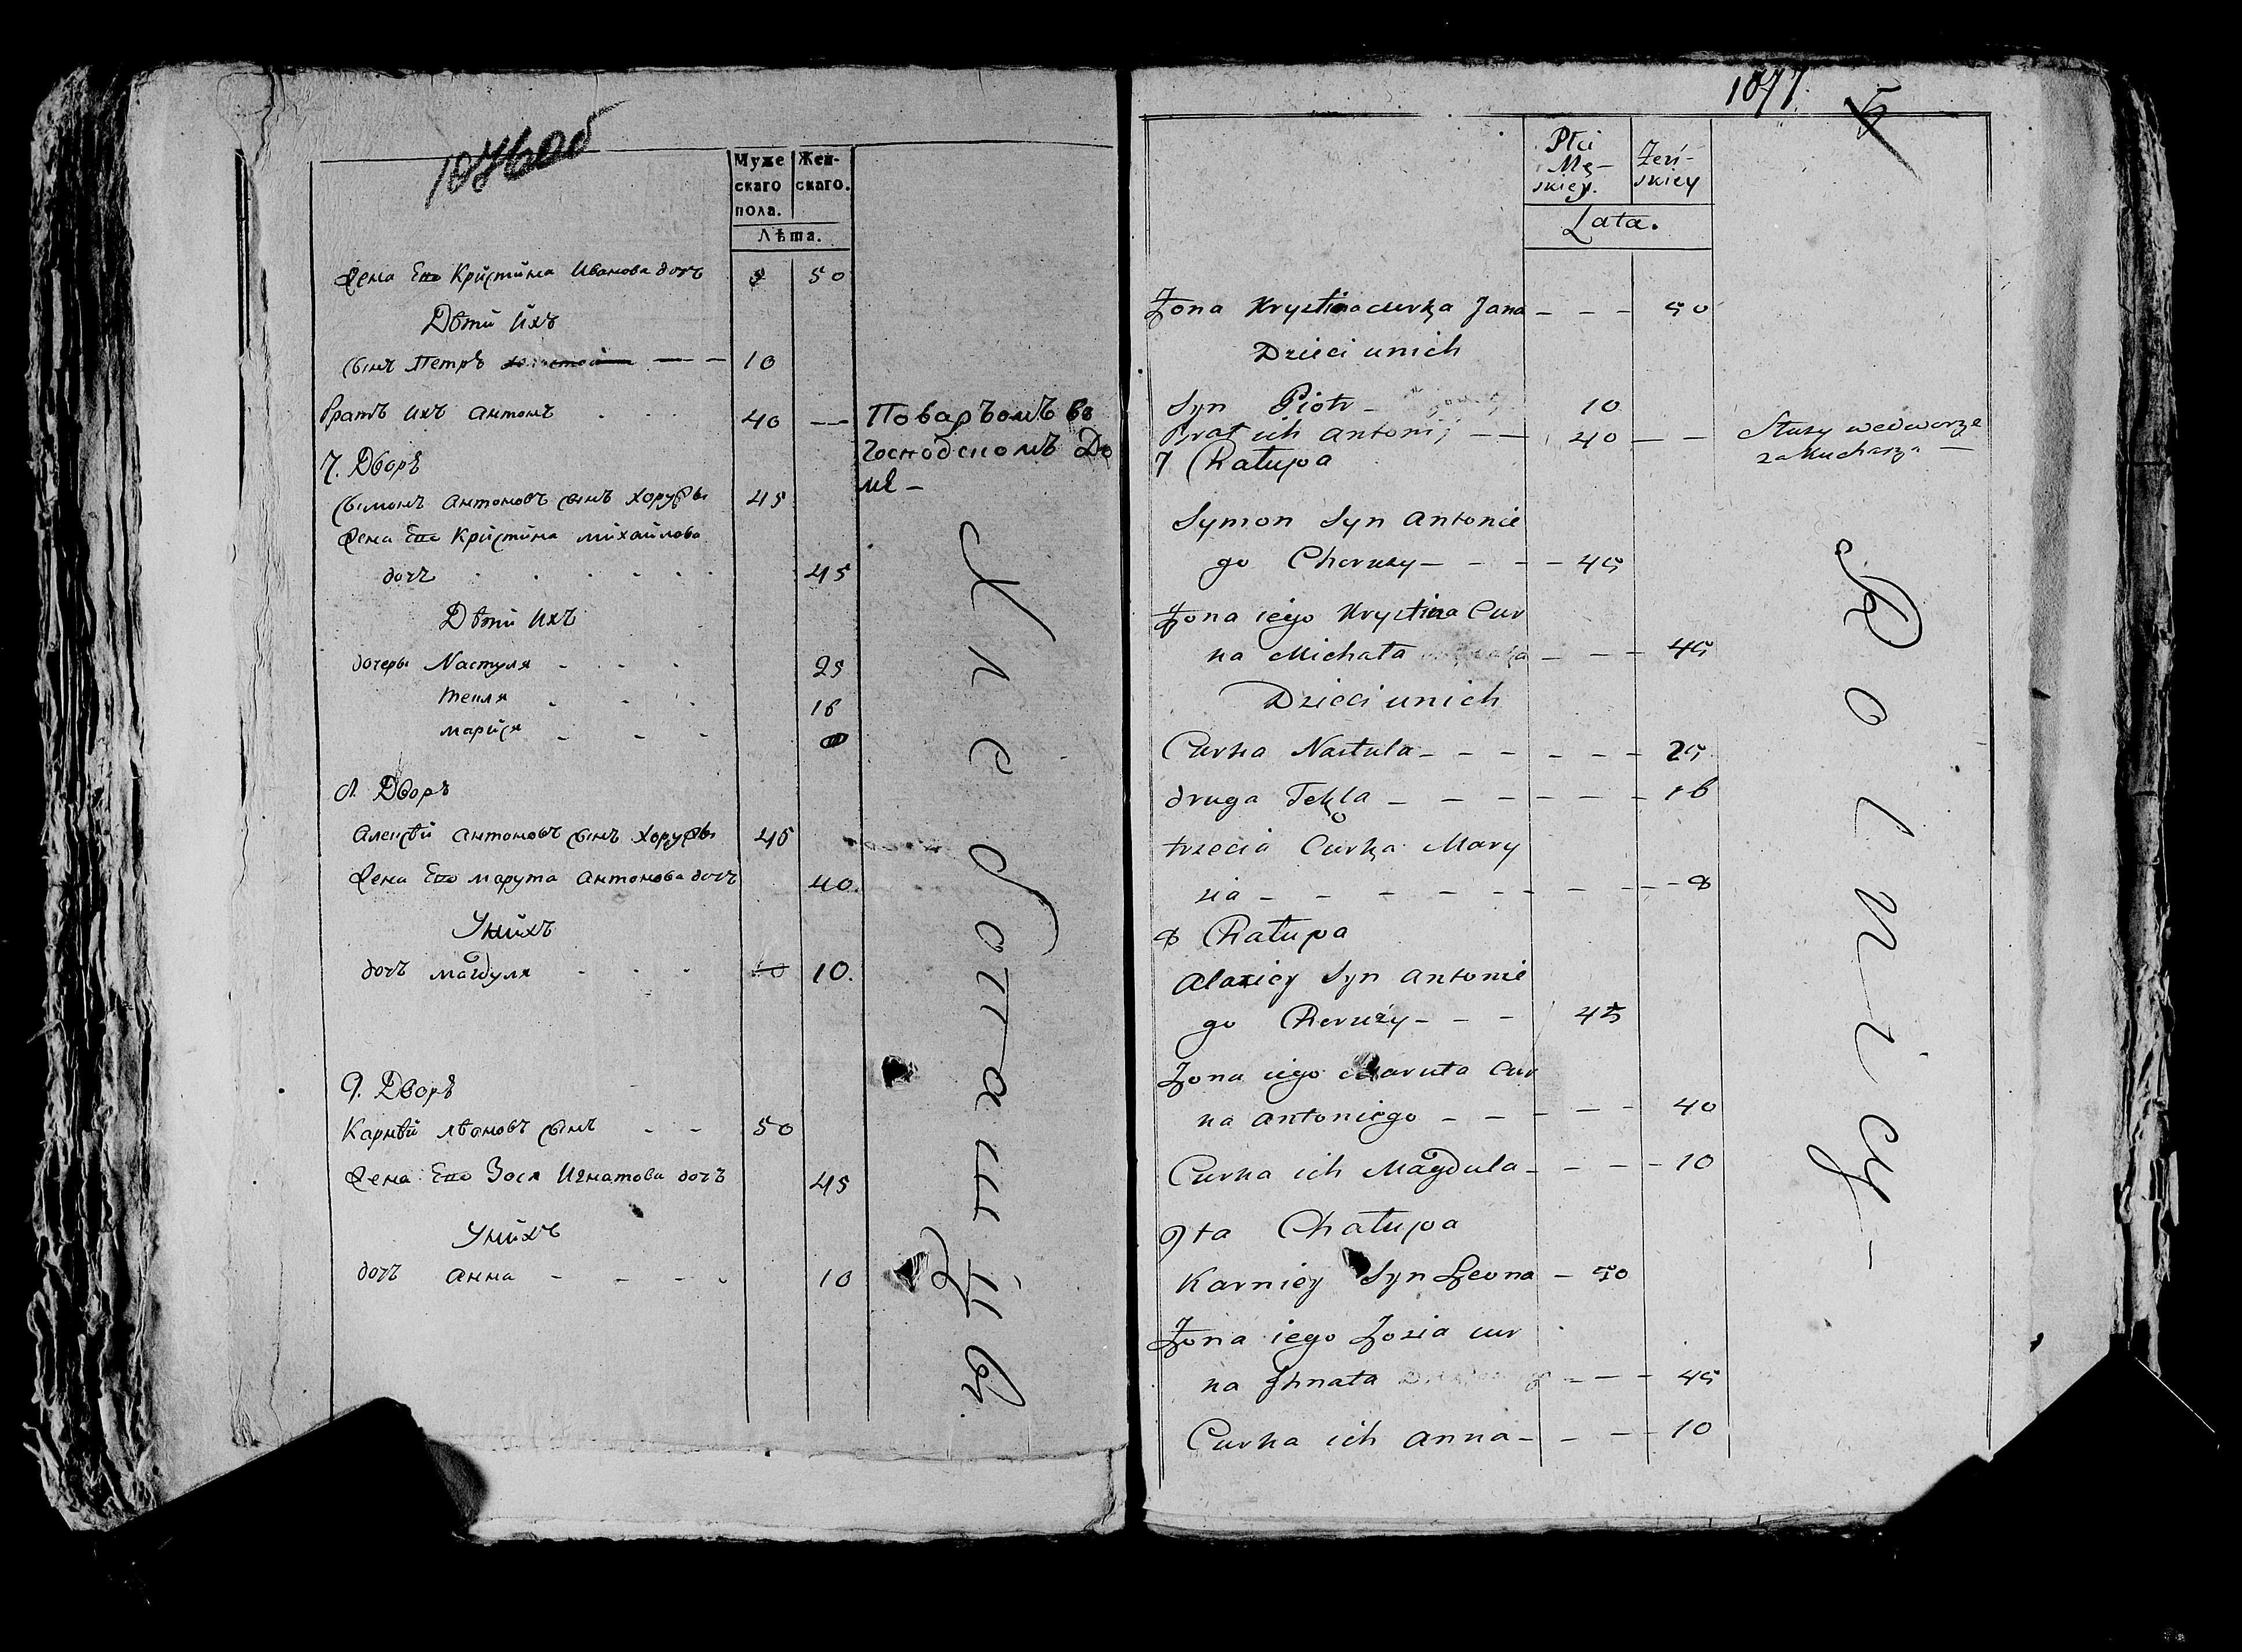 1076об
Муже Жен-
скаго скаго.
пола.
Лѣта.
Жена Его Кристина Иванова дочь 50
Дѣти Ихъ
сынъ Петръ — — 10
братъ Ихъ Антонъ 40 — Поваръомъ во
господскомъ До
мѣ —
7. Дворъ
Сымонъ Антоновъ сынъ Хоружы 45
Жена Его Кристина Михайлова
дочь 45
Дѣти Ихъ
дочеры Настуля 25
Текля 16
Марися
8. Дворъ
Алексѣй Антоновъ сынъ Хоружы 45
Жена Его Марута Антонова дочь 40.
Унихъ
дочь Магдуля 10 10.
9. Дворъ
Карнѣй Лѣоновъ сынъ - - 50
Жена Его Зося Игнатова дочь 45
Унихъ
дочь Анна - - - - 10
1077.
5
Płci Żeń-
Mę- skiey
skiey.
Lata.
Żona Krystina curka Jana - - - 50
Dzieci unich
Syn Piotr - 10
Brat ich Antonij - - 40 - - Służy wedworze
za Kucharza -
7 Chałupa
Symon Syn Antonie
go Choruży - - - - 45
Żona iego Krystina Cur
ka Michała - - - 45
Dzieci unich
Curka Nastula - - - - - - 25
druga Tekla - - - - - - 16
trzecia Curka Mary
sia - - - - - - - - 8
8 Chałupa
Alaxiey Syn Antonie
go Choruży - - - 45
Żona iego Maruta Cur
ka Antoniego - - - - - 40
Curka ich Magdula - - - - 10
9ta Chałupa
Karniey Syn Leona - 50
Żona iego Zosia cur
ka Ihnata - - - 45
Curka ich Anna - - - - 10
Rolnicy -